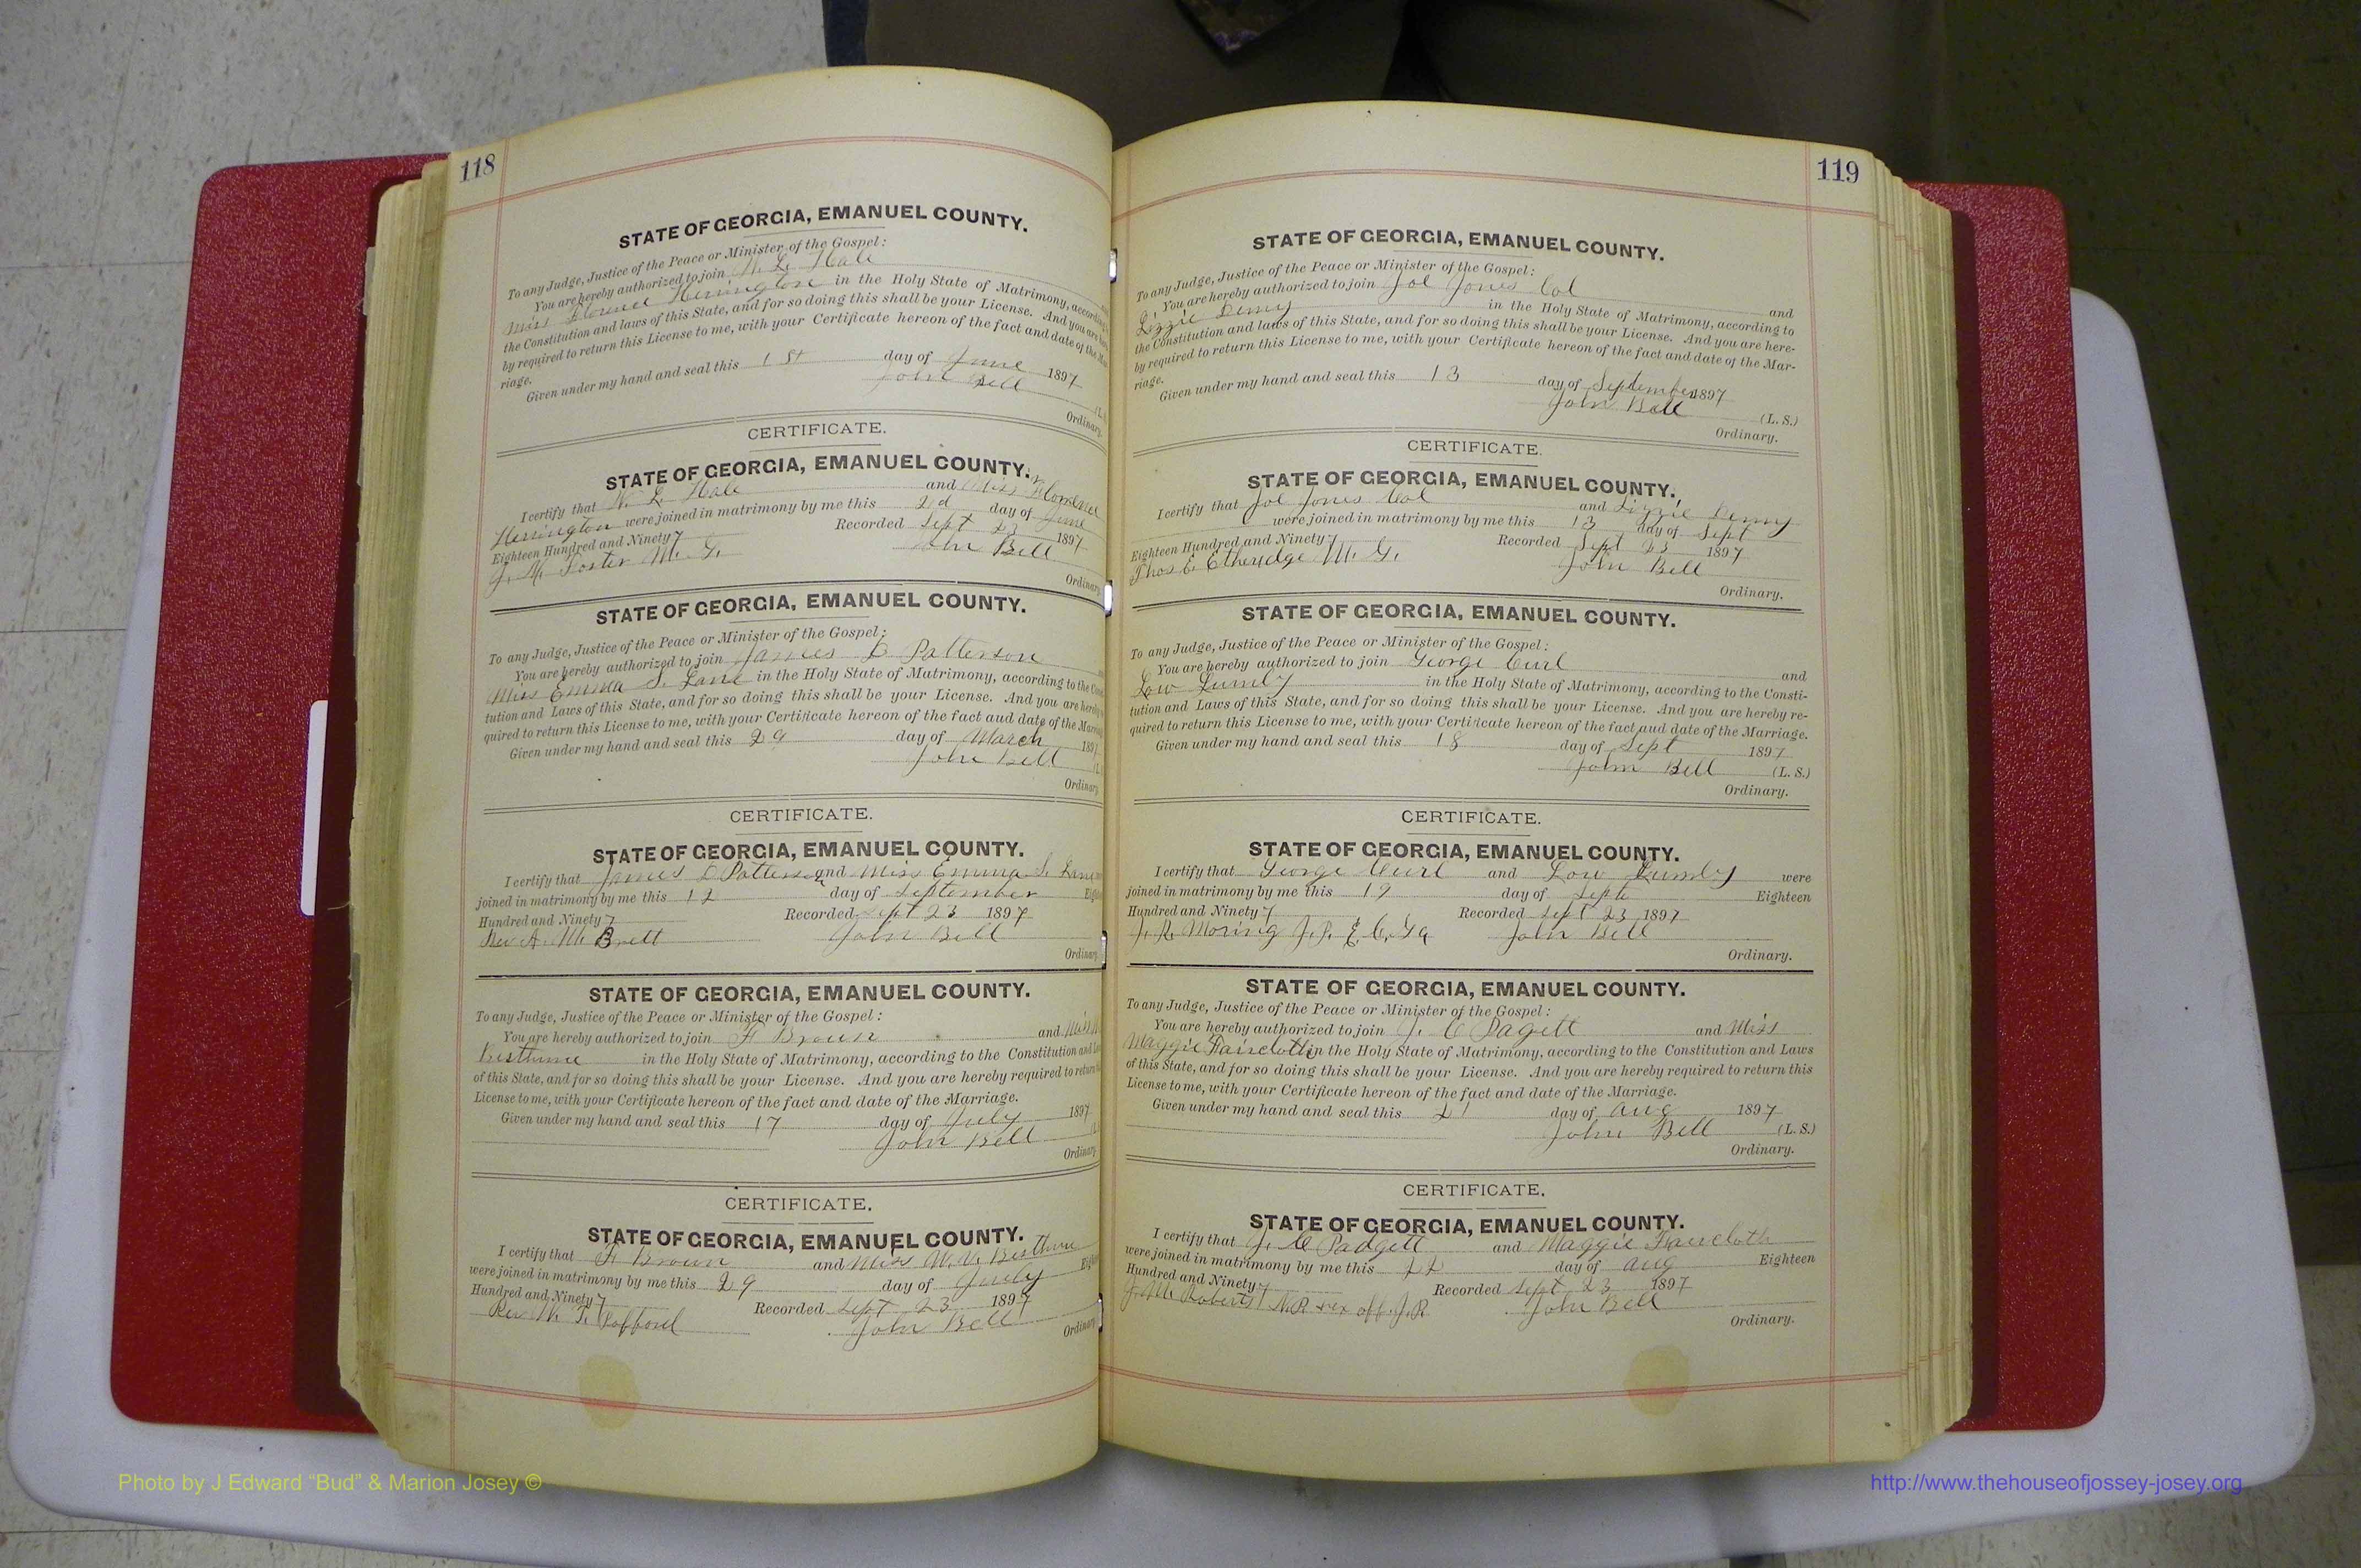 118
STATE OF GEORGIA, EMANUEL COUNTY.
To any Judge, Justice of the Peace or Minister of the Gospel:
You are hereby authorized to join W. L. Hale
Miss Florence Herrington in the Holy State of Matrimony, according
the Constitution and laws of this State, and for so doing this shall be your License. And you are
by required to return this License to me, with your Certificate hereon of the fact and date of the
riage.
Given under my hand and seal this 1st day of June 1897
John Bell
Ordinary.
CERTIFICATE.
STATE OF GEORGIA, EMANUEL COUNTY.
I certify that W. L. Hale and Miss Florence
Herrington were joined in matrimony by me this 2d day of June
Eighteen Hundred and Ninety 7 Recorded Sept 23 1897
Foster M. G. John Bell
Ordinary.
STATE OF GEORGIA, EMANUEL COUNTY.
To any Judge, Justice of the Peace or Minister of the Gospel:
You are hereby authorized to join James D Patterson
Miss Emma S. Lane in the Holy State of Matrimony, according to the
tution and Laws of this State, and for so doing this shall be your License. And you are hereby
quired to return this License to me, with your Certificate hereon of the fact aud date of the
Given under my hand and seal this 29 day of March 1897
John Bell
Ordinary.
CERTIFICATE.
STATE OF GEORGIA, EMANUEL COUNTY.
I certify that James D Patterson and Miss Emma S. Lane
joined in matrimony by me this 12 day of September
Hundred and Ninety 7 Recorded Sept 23 1897
Rev A. M. Brett John Bell
Ordinary.
STATE OF GEORGIA, EMANUEL COUNTY.
To any Judge, Justice of the Peace or Minister of the Gospel:
You are hereby authorized to join F Brown and Miss
in the Holy State of Matrimony, according to the Constitution and
of this State, and for so doing this shall be your License. And you are hereby required to return
License to me, with your Certificate hereon of the fact and date of the Marriage.
Given under my hand and seal this 17 day of July 1897
John Bell
Ordinary.
CERTIFICATE.
STATE OF GEORGIA, EMANUEL COUNTY.
I certify that F Brown and Miss
were joined in matrimony by me this 29 day of July
Hundred and Ninety 7 Recorded Sept 23 1897
Rev John Bell
Ordinary.
119
STATE OF GEORGIA, EMANUEL COUNTY.
To any Judge, Justice of the Peace or Minister of the Gospel:
You are hereby authorized to join Joe Jones Col and
Lizzie Demy in the Holy State of Matrimony, according to
the Constitution and laws of this State, and for so doing this shall be your License. And you are here-
by required to return this License to me, with your Certificate hereon of the fact and date of the Mar-
riage.
Given under my hand and seal this 13 day of September 1897
John Bell (L. S.)
Ordinary.
CERTIFICATE.
STATE OF GEORGIA, EMANUEL COUNTY.
I certify that Joe Jones Col and Lizzie Demy
were joined in matrimony by me this 13 day of Sept
Eighteen Hundred and Ninety 7 Recorded Sept 23 1897
Thos E Etheridge M. G. John Bell
Ordinary.
STATE OF GEORGIA, EMANUEL COUNTY.
To any Judge, Justice of the Peace or Minister of the Gospel:
You are hereby authorized to join George Curl and
Low Lumby in the Holy State of Matrimony, according to the Consti-
tution and Laws of this State, and for so doing this shall be your License. And you are hereby re-
quired to return this License to me, with your Certificate hereon of the fact aud date of the Marriage.
Given under my hand and seal this 18 day of Sept 1897
John Bell (L. S.)
Ordinary.
CERTIFICATE.
STATE OF GEORGIA, EMANUEL COUNTY.
I certify that George Curl and Low Lumby were
joined in matrimony by me this 19 day of Septe Eighteen
Hundred and Ninety 7 Recorded Sept 23 1897
J. R. Moring J. P. E. C. Ga John Bell
Ordinary.
STATE OF GEORGIA, EMANUEL COUNTY.
To any Judge, Justice of the Peace or Minister of the Gospel:
You are hereby authorized to join J. C Pagett and Miss
Maggie Faircloth in the Holy State of Matrimony, according to the Constitution and Laws
of this State, and for so doing this shall be your License. And you are hereby required to return this
License to me, with your Certificate hereon of the fact and date of the Marriage.
Given under my hand and seal this 21 day of Aug 1897
John Bell (L. S.)
Ordinary.
CERTIFICATE.
STATE OF GEORGIA, EMANUEL COUNTY.
I certify that J. C Padgett and Maggie Faircloth
were joined in matrimony by me this 22 day of Aug Eighteen
Hundred and Ninety 7 Recorded Sept 23 1897
J. M. Roberts N.P. & ex off. J.P. John Bell
Ordinary.
Photo by J Edward “Bud” & Marion Josey ©
http://www.thehouseofjossey-josey.org